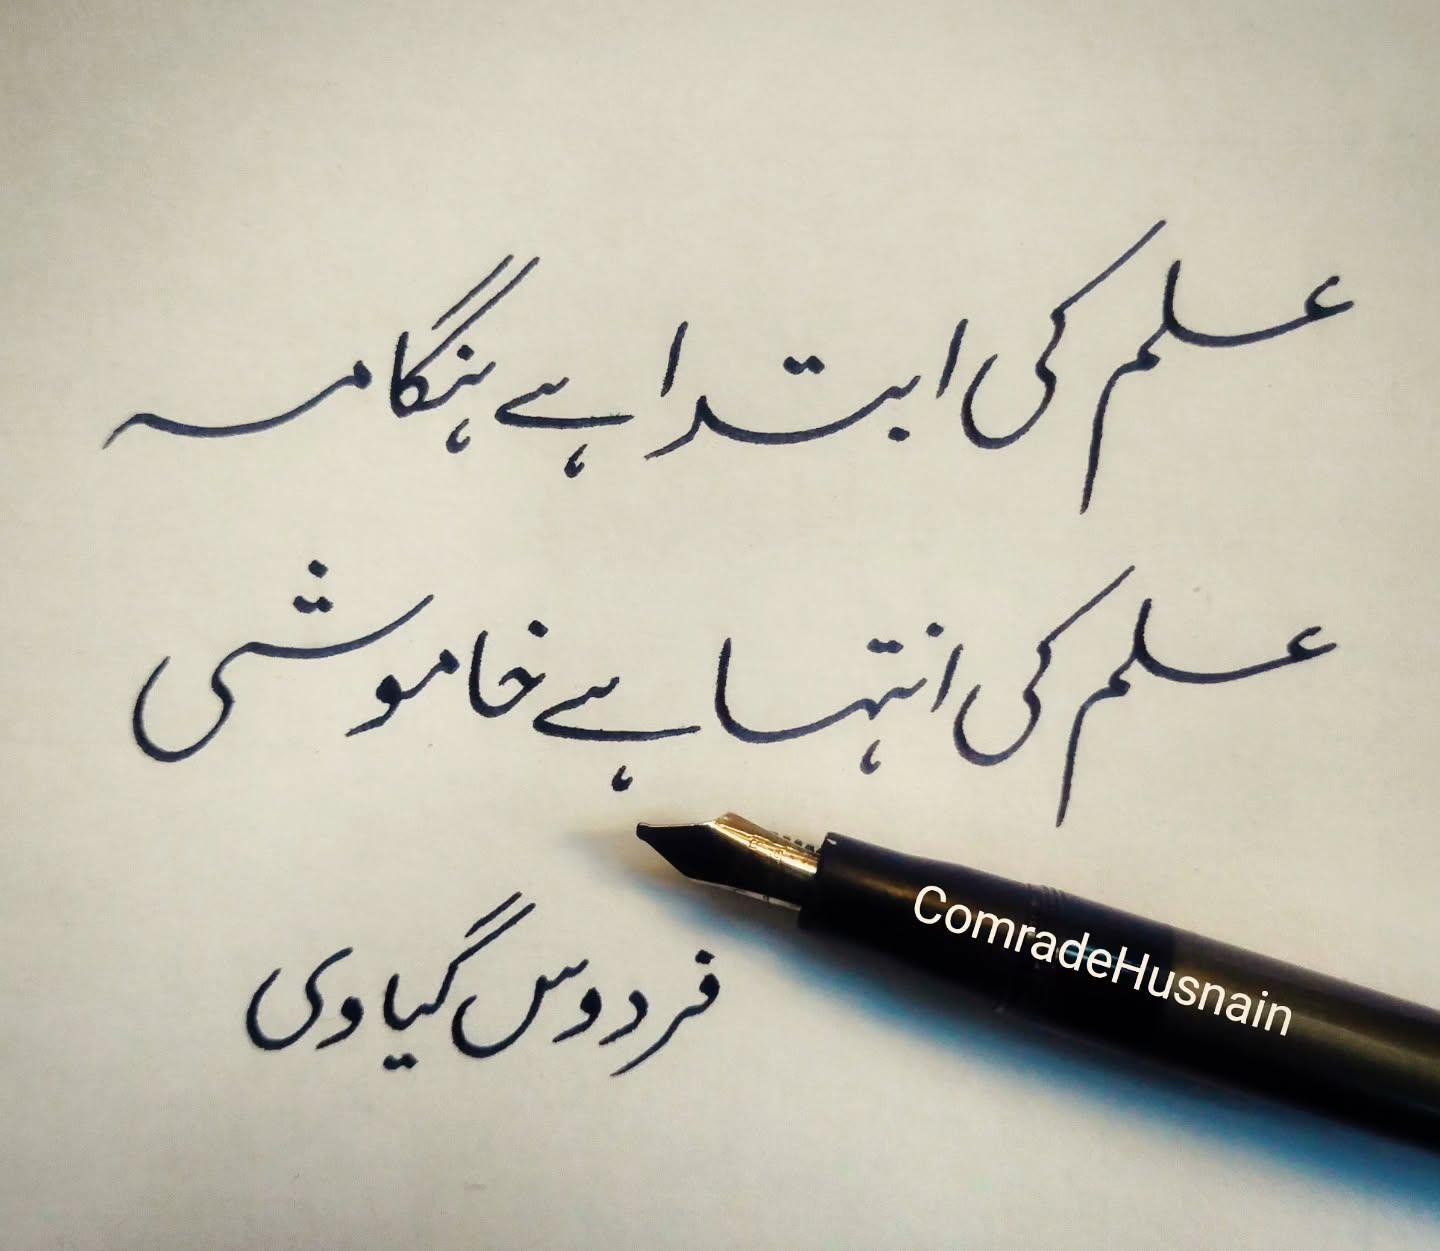 علم کی ابتدا ہے ہنگامہ
علم کی انتہا ہے خاموشی
فردوس گیاوی
ComradeHusnain